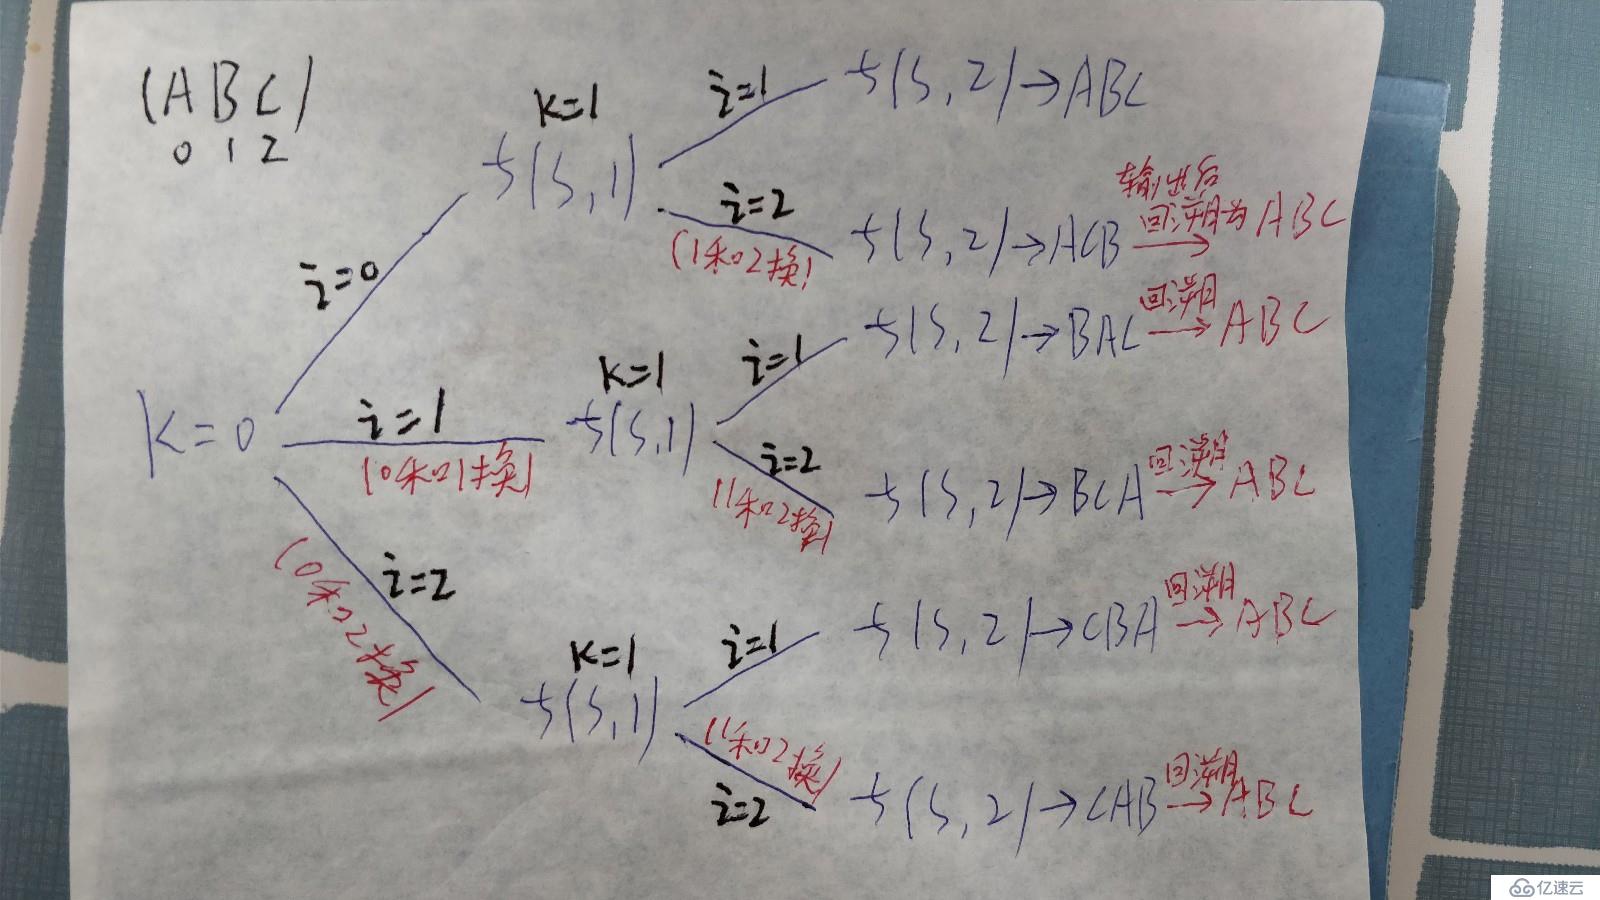 (ABC)
0 1 2
K=1
i=1
f(S,2)→ABC
f(S,1)
i=2
(1和2换)
f(S,2)→ACB
输出后
回溯为ABC
→
i=0
K=1
i=1
f(S,2)→BAC
回溯
→ABC
K=0
i=1
(0和1换)
f(S,1)
i=2
(1和2换)
f(S,2)→BCA
回溯
→ABC
i=2
(0和2换)
K=1
i=1
f(S,2)→CBA
回溯
→ABC
f(S,1)
(1和2换)
i=2
f(S,2)→CAB
回溯
→ABC
亿速云